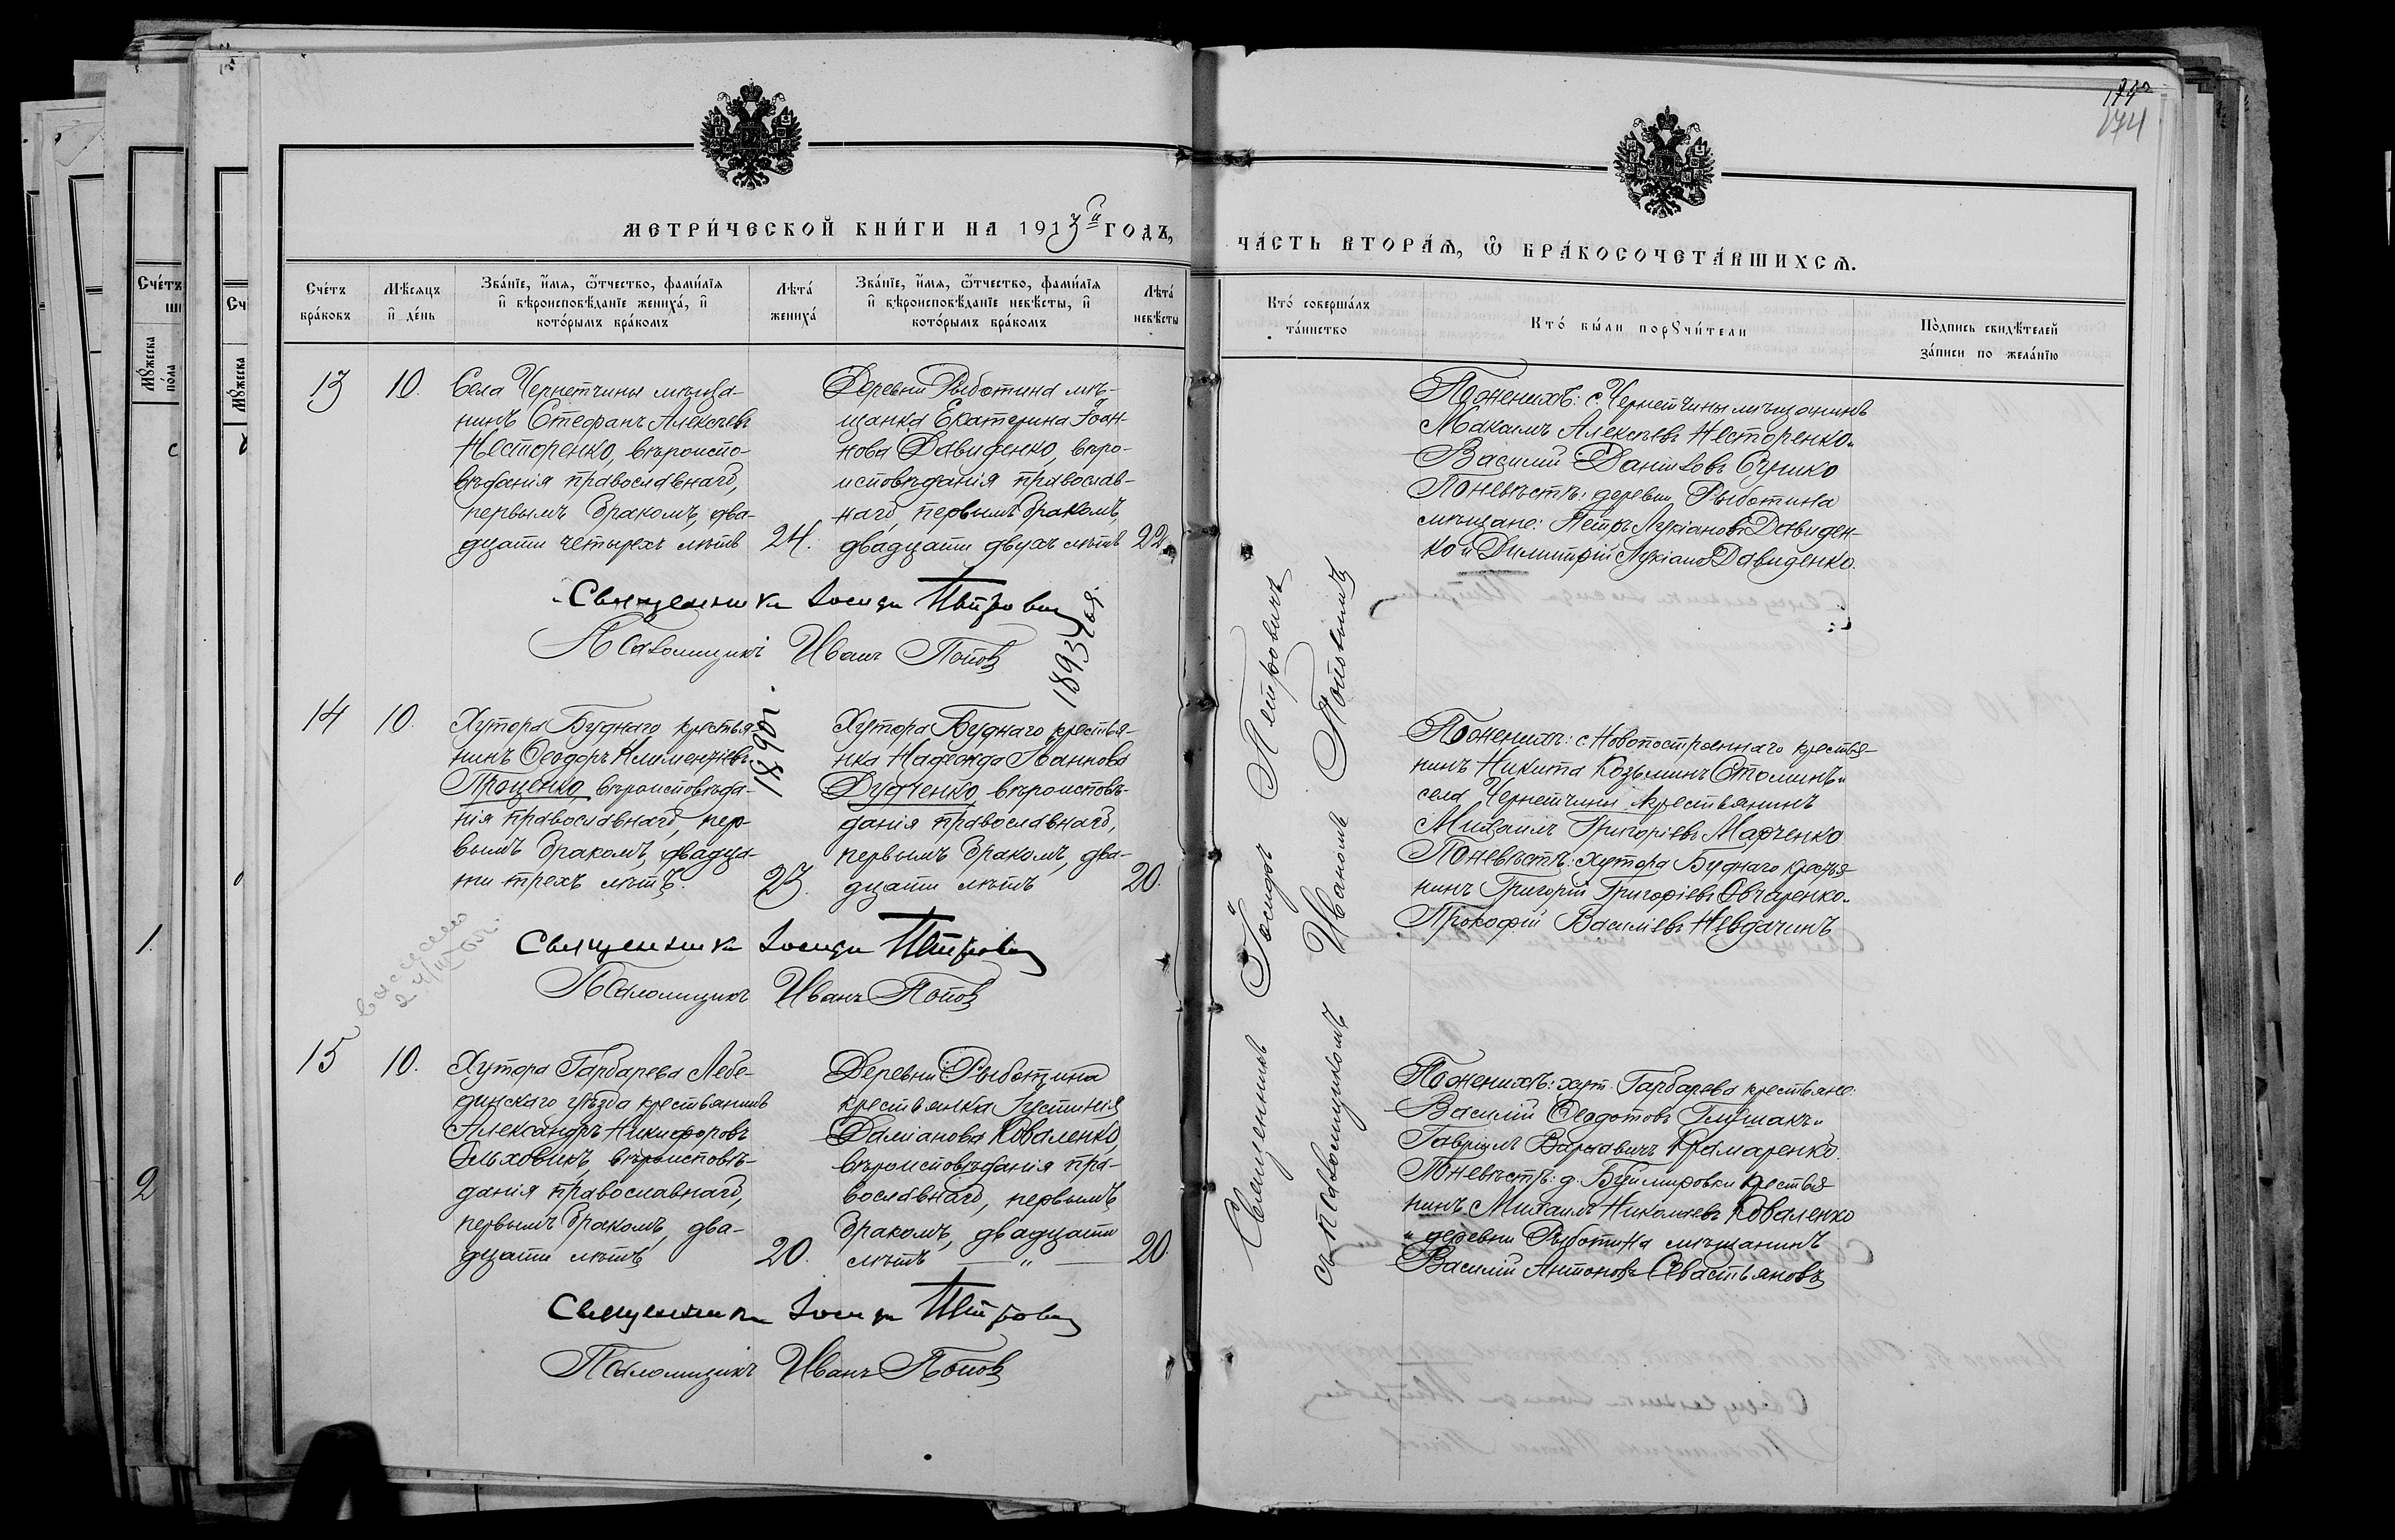 174
МЕТРИ́ЧЕСКОЙ КНИ́ГИ НА 1913й ГОДЪ,
ЧА́СТЬ ВТОРА́Ѧ, Ѡ҆ БРА́КОСОЧЕТА́ВШИХСѦ.
Сче́тъ бра́ковъ
Мѣ́сѧцъ и҆ де́нь
Зва́нїе, и҆́мѧ, ѻ҆́тчество, фами́лїѧ
и҆ вѣроисповѣ́данїе жениха́, и҆
кото́рымъ бра́комъ
Лѣта́ жениха́
Зва́нїе, и҆́мѧ, ѻ҆́тчество, фами́лїѧ
и҆ вѣроисповѣ́данїе невѣ́сты, и҆
кото́рымъ бра́комъ
Лѣта́ невѣ́сты
Кто́ соверша́лъ
та́инство
Кто́ бы́ли порꙋчи́тели
По́дпись свидѣ́телей
за́писи по жела́нїю
13
10.
Села Чернетчины мѣща-
нинъ Стефанъ Алексѣевъ
Несторенко, вѣроиспо-
вѣданія православнаго,
первымъ бракомъ, два-
дцати четырехъ лѣтъ
24.
Деревни Рыботина мѣ-
щанка Екатерина Іоан-
нова Давиденко, вѣро-
исповѣданія православ-
наго, первымъ бракомъ,
двадцати двухъ лѣтъ
22.
Священникъ Іосифъ Петровичъ
Псаломщикъ Иванъ Поповъ
По женихѣ: с. Чернетчины мѣщанинъ
Максимъ Алексѣевъ Несторенко и
Василій Даніиловъ
По невѣстѣ: деревни Рыботина
мѣщане: Петръ Лукіановъ Давиден-
ко и Димитрій Лукіановъ Давиденко.
14
10.
Хутора Буднаго крестья-
нинъ Ѳеодоръ Климентіевъ
Проценко вѣроисповѣда-
нія православнаго, пер-
вымъ бракомъ, двадца-
ти трехъ лѣтъ.
1890г.
23.
Хутора Буднаго крестья-
нка Надежда Іоаннова
Дудченко вѣроисповѣ-
данія православнаго,
первымъ бракомъ, два-
дцати лѣтъ
1893
20.
Священникъ Іосифъ Петровичъ
Псаломщикъ Иванъ Поповъ
По женихѣ: с. Новопостроеннаго крестья-
нинъ Никита Козьминъ Стоминъ и
села Чернетчины крестьянинъ
Михаилъ Григоріевъ Марченко
По невѣстѣ: хутора Буднаго крестья-
нинъ Григорій Григоріевъ Овчаренко и
Прокофій Василіевъ Невдачинъ
15
10.
Хутора Гарбарева Лебе-
динскаго уѣзда крестьянинъ
Александръ Никифоровъ
Ольховикъ, вѣроисповѣ-
данія православнаго,
первымъ бракомъ, два-
дцати лѣтъ
20.
Деревни Рыботина
крестьянка Іустинія
Даміанова Коваленко,
вѣроисповѣданія пра-
вославнаго, первымъ
бракомъ, двадцати
лѣтъ — „ —
20.
Священникъ Іосифъ Петровичъ
Псаломщикъ Иванъ Поповъ
По женихѣ: хут. Гарбарева крестьяне:
Василій Ѳеодотовъ Глушакъ и
Гавріилъ Варѳавичъ Крамаренко.
По невѣстѣ: д. Буймировки крестья-
нинъ Михаилъ Николаевъ Коваленко
и деревни Рыботина мѣщанинъ
Василій Антоновъ Севастьяновъ
Священникъ Іосифъ Петровичъ
съ псаломщикомъ Иваномъ Поповымъ
Сче́тъ
Мꙋ́жеска по́ла
1.
2